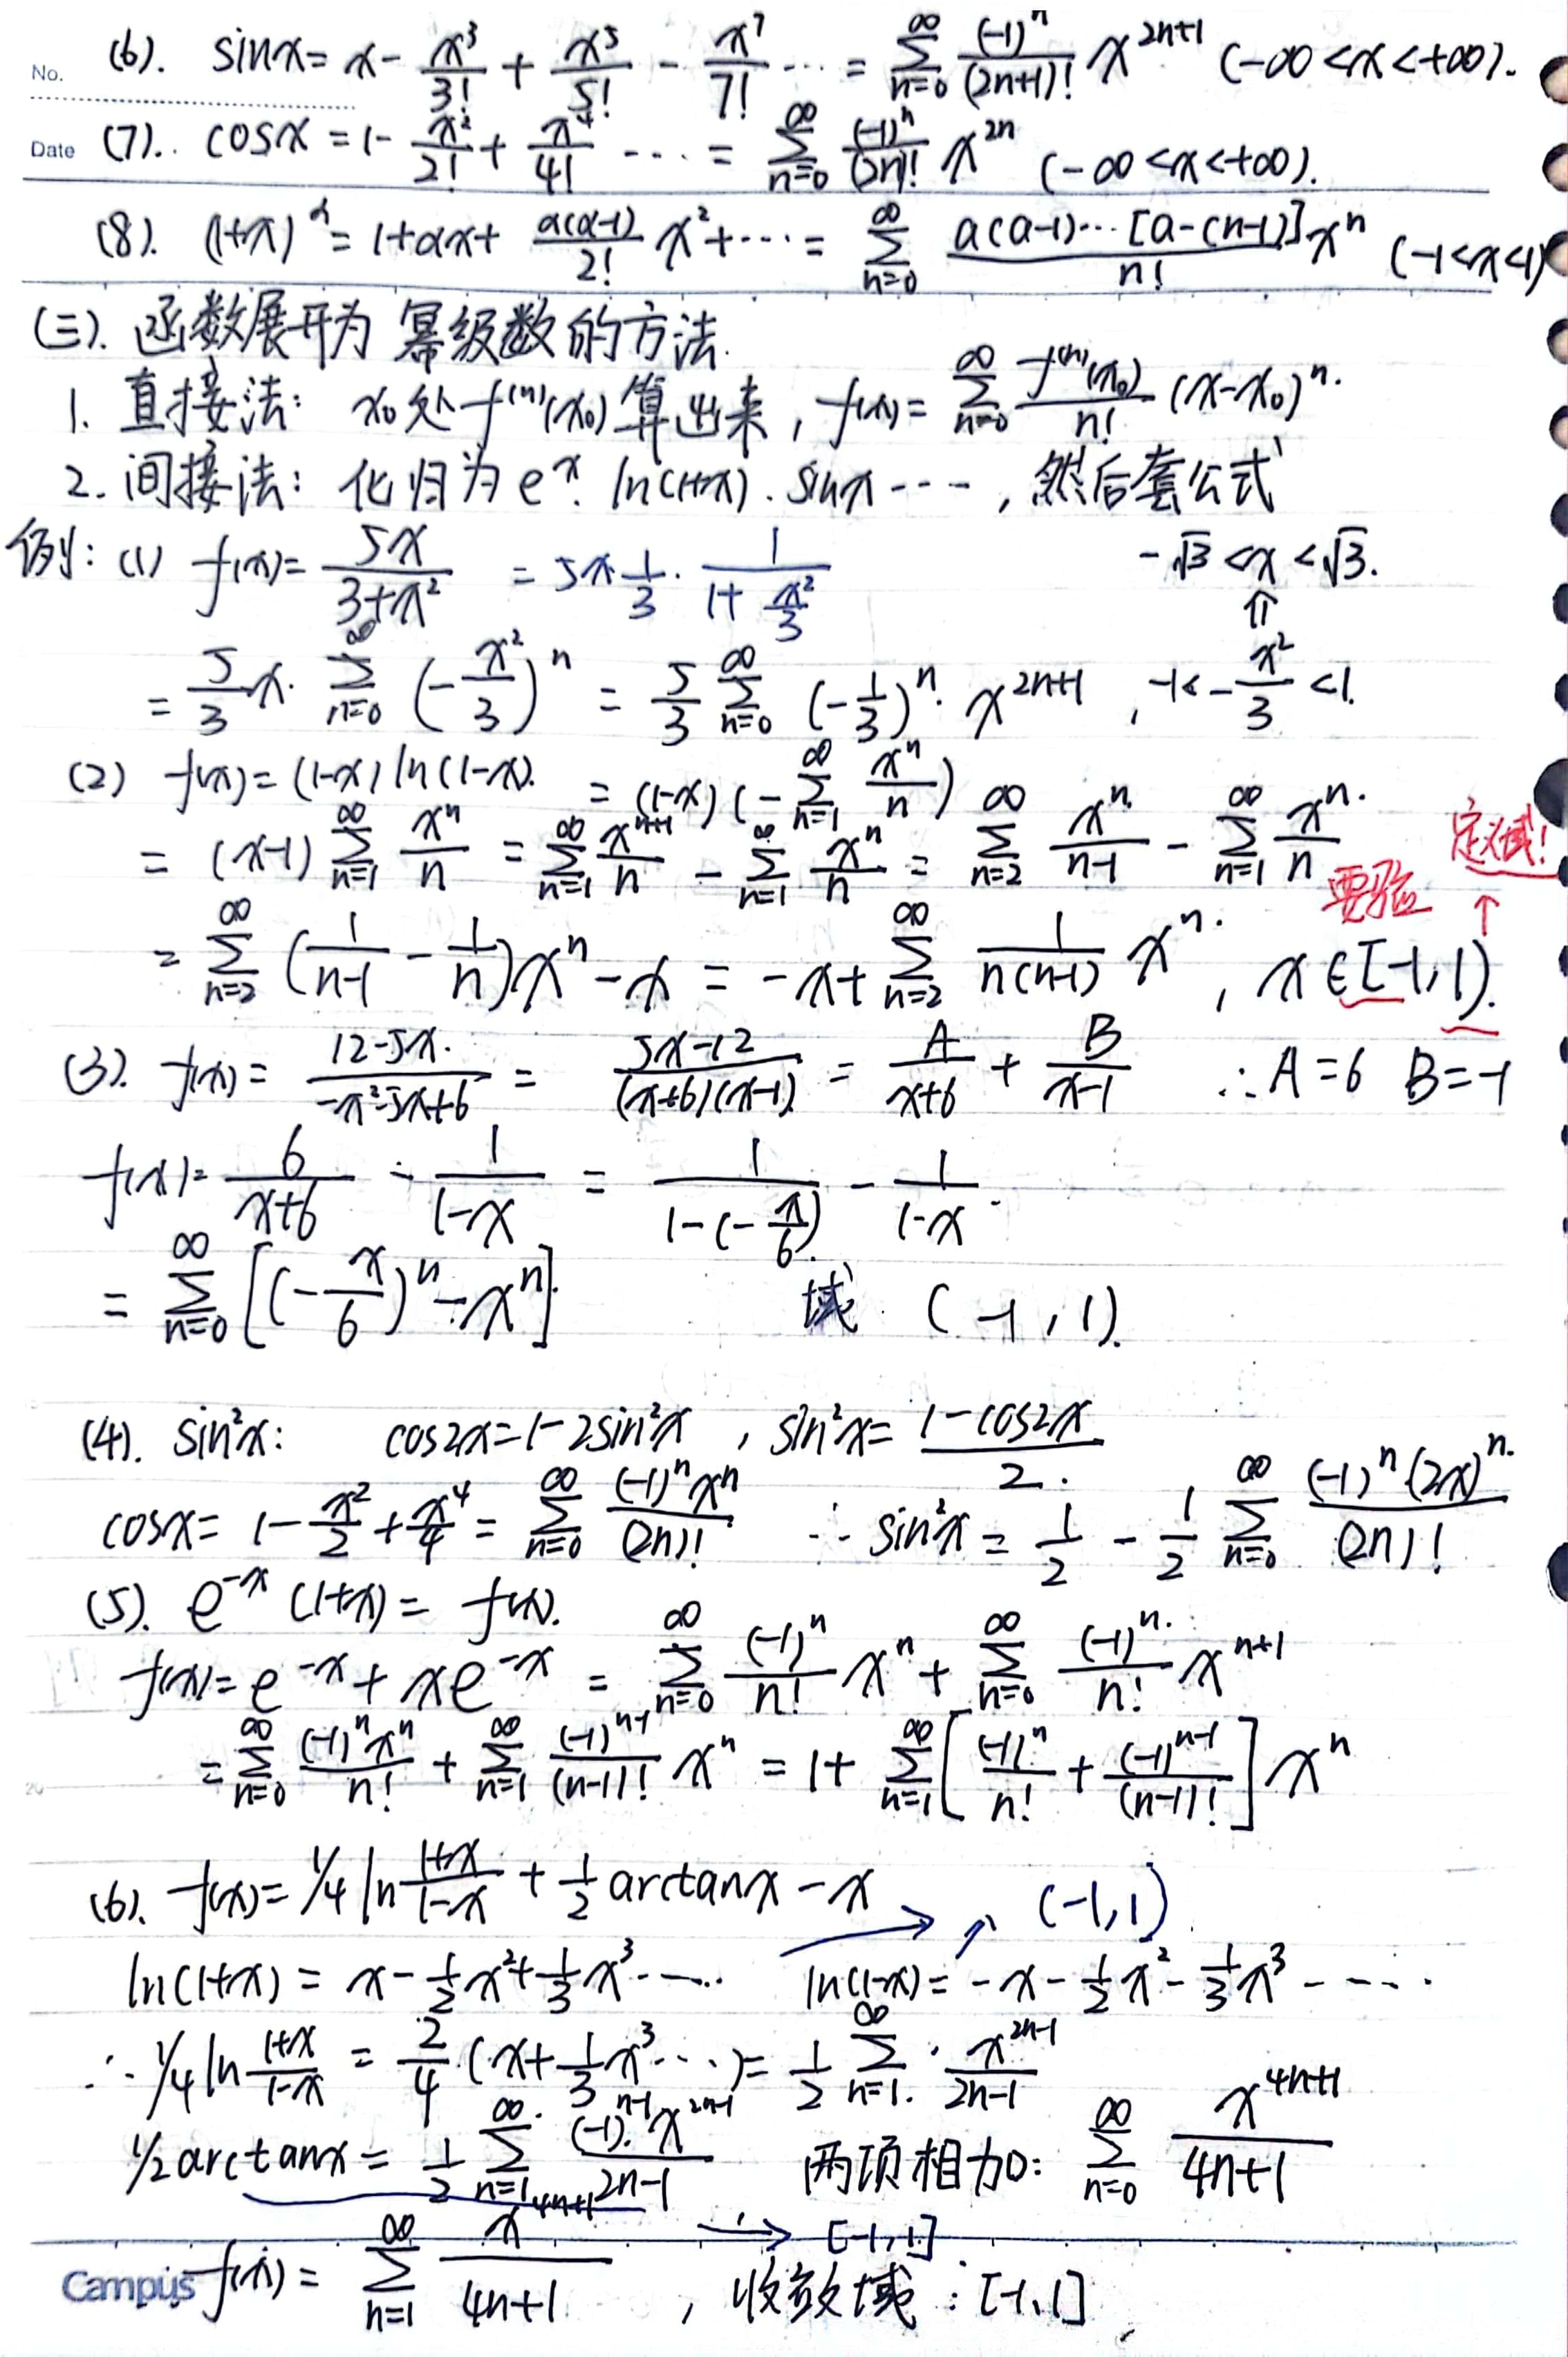 No. (6). sinx = x - x³/3! + x⁵/5! - x⁷/7! ··· = ∑_{n=0}^{∞} (-1)ⁿ/(2n+1)! x^{2n+1} (-∞<x<+∞).
Date (7).. cosx = 1 - x²/2! + x⁴/4! ··· = ∑_{n=0}^{∞} (-1)ⁿ/(2n)! x^{2n} (-∞<x<+∞).
(8). (1+x)^α = 1+αx+ α(α-1)/2! x² + ··· = ∑_{n=0}^{∞} a(a-1)···[a-(n-1)]/n! xⁿ (-1<x<1)
(三). 函数展开为幂级数的方法.
1. 直接法: x₀处 f⁽ⁿ⁾(x₀) 算出来, f(x) = ∑_{n=0}^{∞} f⁽ⁿ⁾(x₀)/n! (x-x₀)ⁿ.
2. 间接法: 化归为 eˣ. ln(1+x). sinx ----, 然后套公式
例: (1) f(x) = 5x/(3+x²) = 5x·1/3 · 1/(1+x²/3) -√3<x<√3.
⇑
= 5/3 x· ∑_{n=0}^{∞} (-x²/3)ⁿ = 5/3 ∑_{n=0}^{∞} (-1/3)ⁿ· x^{2n+1}, -1<-x²/3<1.
(2) f(x) = (1-x)ln(1-x). = (1-x)(-∑_{n=1}^{∞} xⁿ/n)
= (x-1) ∑_{n=1}^{∞} xⁿ/n = ∑_{n=1}^{∞} x^{n+1}/n - ∑_{n=1}^{∞} xⁿ/n = ∑_{n=2}^{∞} xⁿ/(n-1) - ∑_{n=1}^{∞} xⁿ/n 定义域!
要验 ↑
= ∑_{n=2}^{∞} (1/(n-1) - 1/n)xⁿ - x = -x + ∑_{n=2}^{∞} 1/(n(n-1)) xⁿ, x∈[-1,1).
(3). f(x) = (12-5x)/(-x²-5x+6) = (5x-12)/((x+6)(x-1)) = A/(x+6) + B/(x-1) ∴A=6 B=-1
f(x) = 6/(x+6) - 1/(1-x) = 1/(1-(-x/6)) - 1/(1-x).
= ∑_{n=0}^{∞} [(-x/6)ⁿ - xⁿ] 域 (-1, 1).
(4). sin²x: cos2x = 1-2sin²x, sin²x = (1-cos2x)/2.
cosx = 1 - x²/2 + x⁴/4 = ∑_{n=0}^{∞} (-1)ⁿxⁿ/(2n)! ∴ sin²x = 1/2 - 1/2 ∑_{n=0}^{∞} (-1)ⁿ·(2x)ⁿ/(2n)!
(5). e^{-x}(1+x) = f(x).
f(x) = e^{-x} + xe^{-x} = ∑_{n=0}^{∞} (-1)ⁿ/n! xⁿ + ∑_{n=0}^{∞} (-1)ⁿ/n! x^{n+1}
= ∑_{n=0}^{∞} (-1)ⁿxⁿ/n! + ∑_{n=1}^{∞} (-1)^{n-1}/(n-1)! xⁿ = 1 + ∑_{n=1}^{∞} [(-1)ⁿ/n! + (-1)^{n-1}/(n-1)!] xⁿ
(6). f(x) = 1/4 ln (1+x)/(1-x) + 1/2 arctanx - x → ↗ (-1,1)
ln(1+x) = x - 1/2x² + 1/3x³ ---- ln(1-x) = -x - 1/2x² - 1/3x³ ----
∴ 1/4 ln (1+x)/(1-x) = 2/4 (x + 1/3x³ ···) = 1/2 ∑_{n=1}^{∞} x^{2n-1}/(2n-1)
1/2 arctanx = 1/2 ∑_{n=1}^{∞} (-1)^{n-1}·x^{2n-1}/(2n-1) 两项相加: ∑_{n=0}^{∞} x^{4n+1}/(4n+1)
→ [-1,1]
Campus f(x) = ∑_{n=1}^{∞} x^{4n+1}/(4n+1), 收敛域: [-1,1]